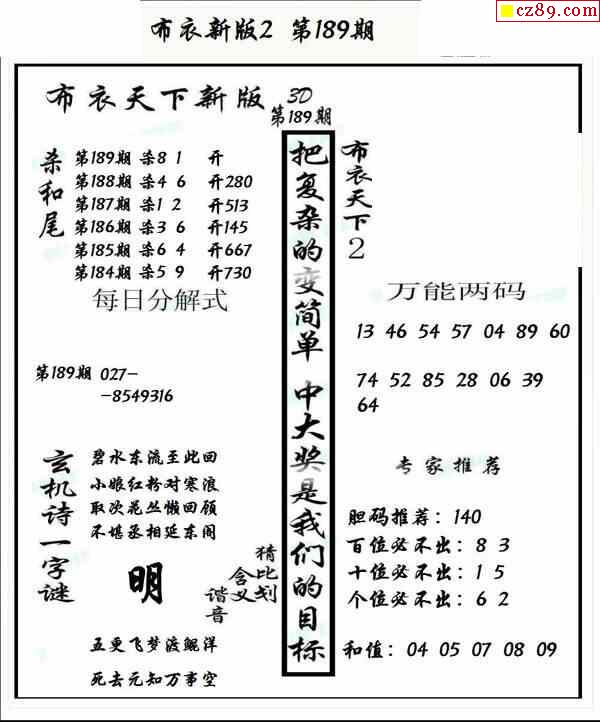 cz89.com
布衣新版2 第189期
布衣天下新版 3D
第189期
杀和尾
第189期 杀8 1 开
第188期 杀4 6 开280
第187期 杀1 2 开513
第186期 杀3 6 开145
第185期 杀6 4 开667
第184期 杀5 9 开730
每日分解式
第189期 027-
-8549316
玄机诗一字谜
碧水东流至此回
小娘红粉对寒浪
取次花丛懒回顾
不堪丞相延东阁
明
猜比划
含义
谐音
五更飞梦渡鲲洋
死去元知万事空
把复杂的变简单 中大奖是我们的目标
布衣天下2
万能两码
13 46 54 57 04 89 60
74 52 85 28 06 39
64
专家推荐
胆码推荐：140
百位必不出：8 3
十位必不出：1 5
个位必不出：6 2
和值：04 05 07 08 09